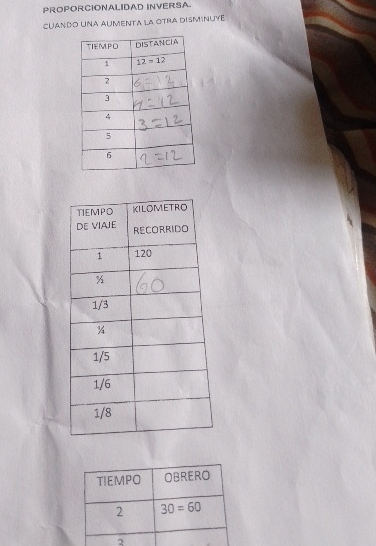 PROPORCIONALIDAD INVERSA.
CUANDO UNA AUMENTA LA OTRA DISMINUYE
TIEMPO DISTANCIA
1 12 = 12
2 6 = 12
3 4 = 12
4 3 = 12
5
6 2 = 12
TIEMPO DE VIAJE KILOMETRO RECORRIDO
1 120
½ 60
1/3
¼
1/5
1/6
1/8
TIEMPO OBRERO
2 30 = 60
3